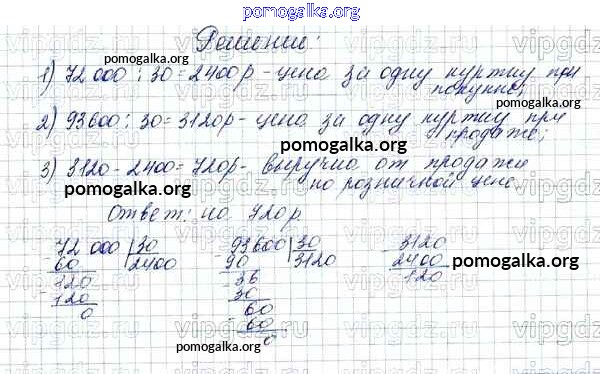 pomogalka.org
Решение:
1) 72 000 : 30 = 2400 р - цена за одну куртку при
покупке;
pomogalka.org
2) 93600 : 30 = 3120 р - цена за одну куртку при
продаже;
3) 3120 - 2400 = 720 р - выручка от продажи
pomogalka.org
по розничной цене
Ответ: на 720 р.
pomogalka.org
72 000 | 30
60 2400
120
120
0
93600 | 30
90 3120
36
30
60
60
0
3120
2400
120
pomogalka.org
pomogalka.org
pomogalka.org
vipgdz.ru